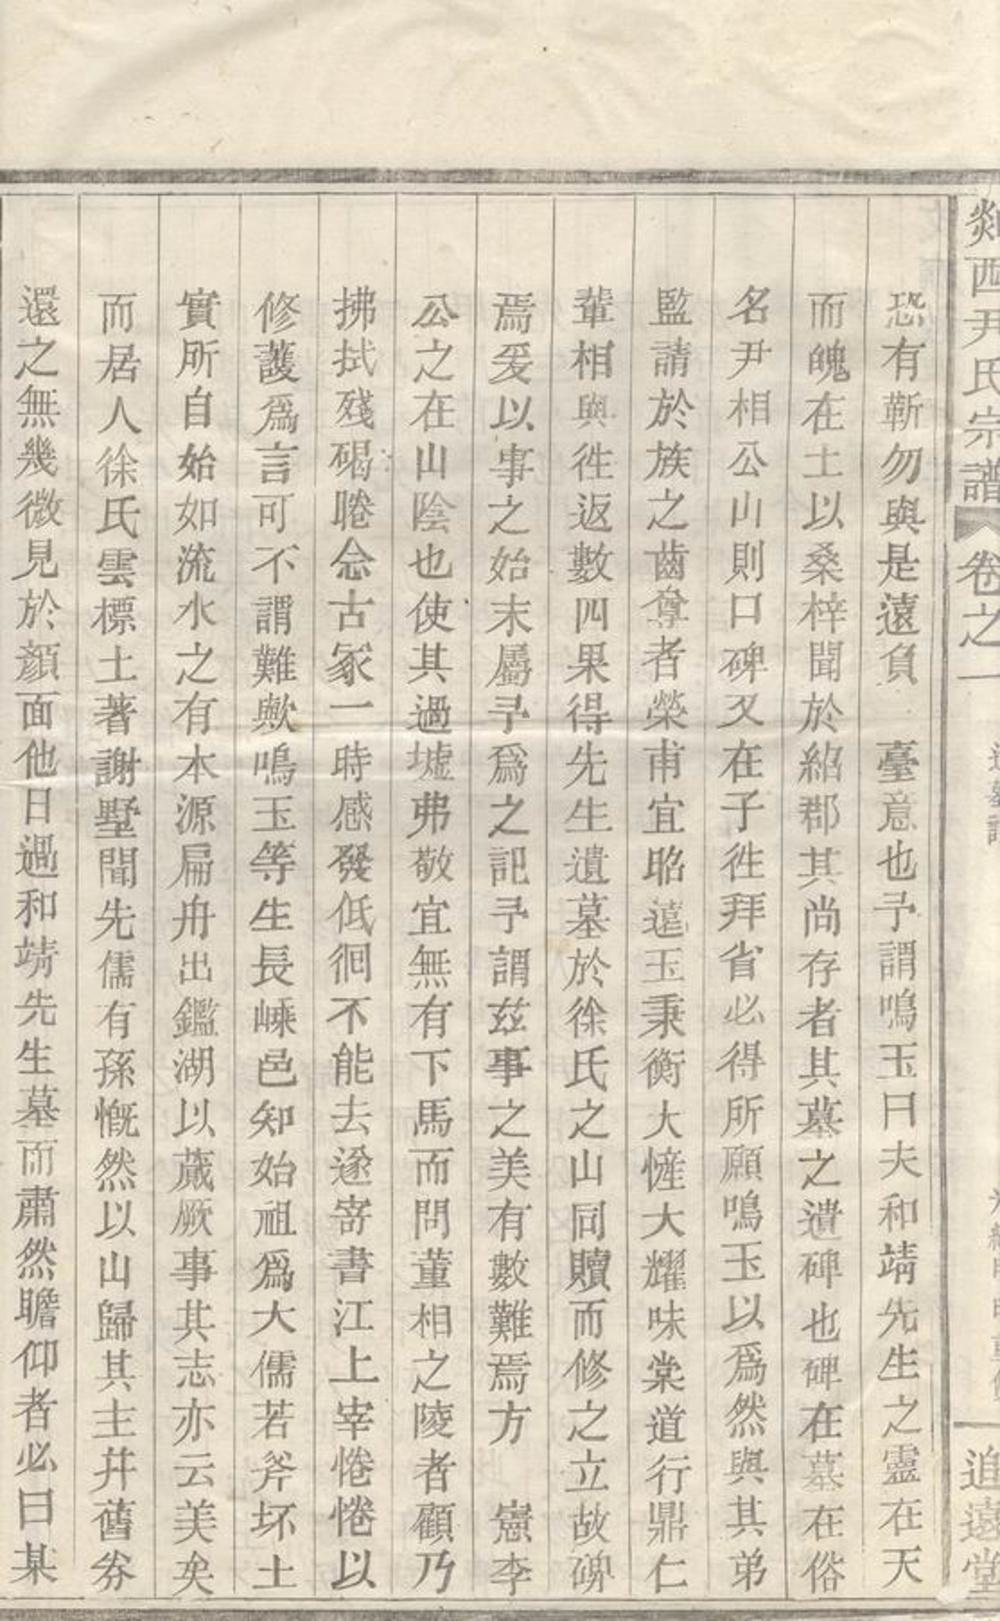 剡西尹氏宗譜 卷之一 追遠堂
恐有靳勿與是遠負 臺意也予謂鳴玉曰夫和靖先生之靈在天
而魄在土以桑梓聞於紹郡其尚存者其墓之遺碑也碑在墓在俗
名尹相公山則口碑又在子徃拜省必得所願鳴玉以爲然與其弟
監請於族之齒尊者榮甫宜昭薳玉秉衡大𢥠大耀味棠道行鼎仁
輩相與徃返數四果得先生遺墓於徐氏之山同贖而修之立故碑
焉爰以事之始末屬予爲之記予謂茲事之美有數難焉方 憲李
公之在山陰也使其過墟弗敬宜無有下馬而問董相之陵者顧乃
拂拭殘碣睠念古冢一時感發低徊不能去遂寄書江上宰惓惓以
修護爲言可不謂難歟鳴玉等生長嵊邑知始祖爲大儒若斧坏土
實所自始如流水之有本源扁舟出鑑湖以蕆厥事其志亦云美矣
而居人徐氏雲標土著謝墅聞先儒有孫慨然以山歸其主并舊券
還之無幾微見於顏面他日過和靖先生墓而肅然瞻仰者必曰某